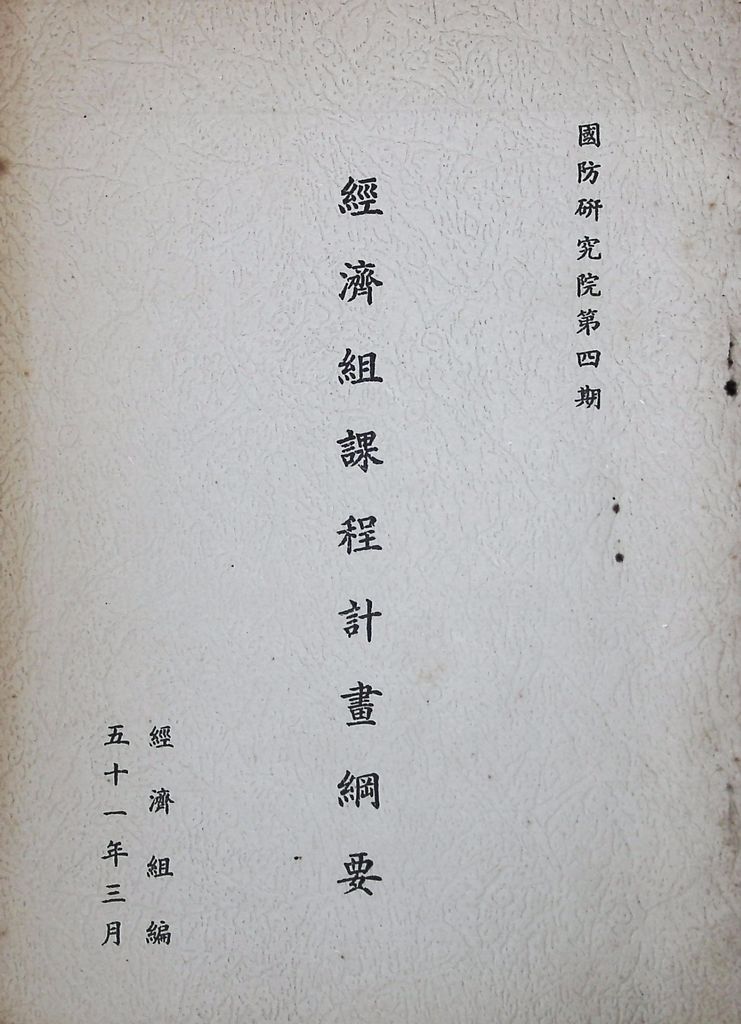 國防硏究院第四期
經濟組課程計畫綱要
經濟組編
五十一年三月